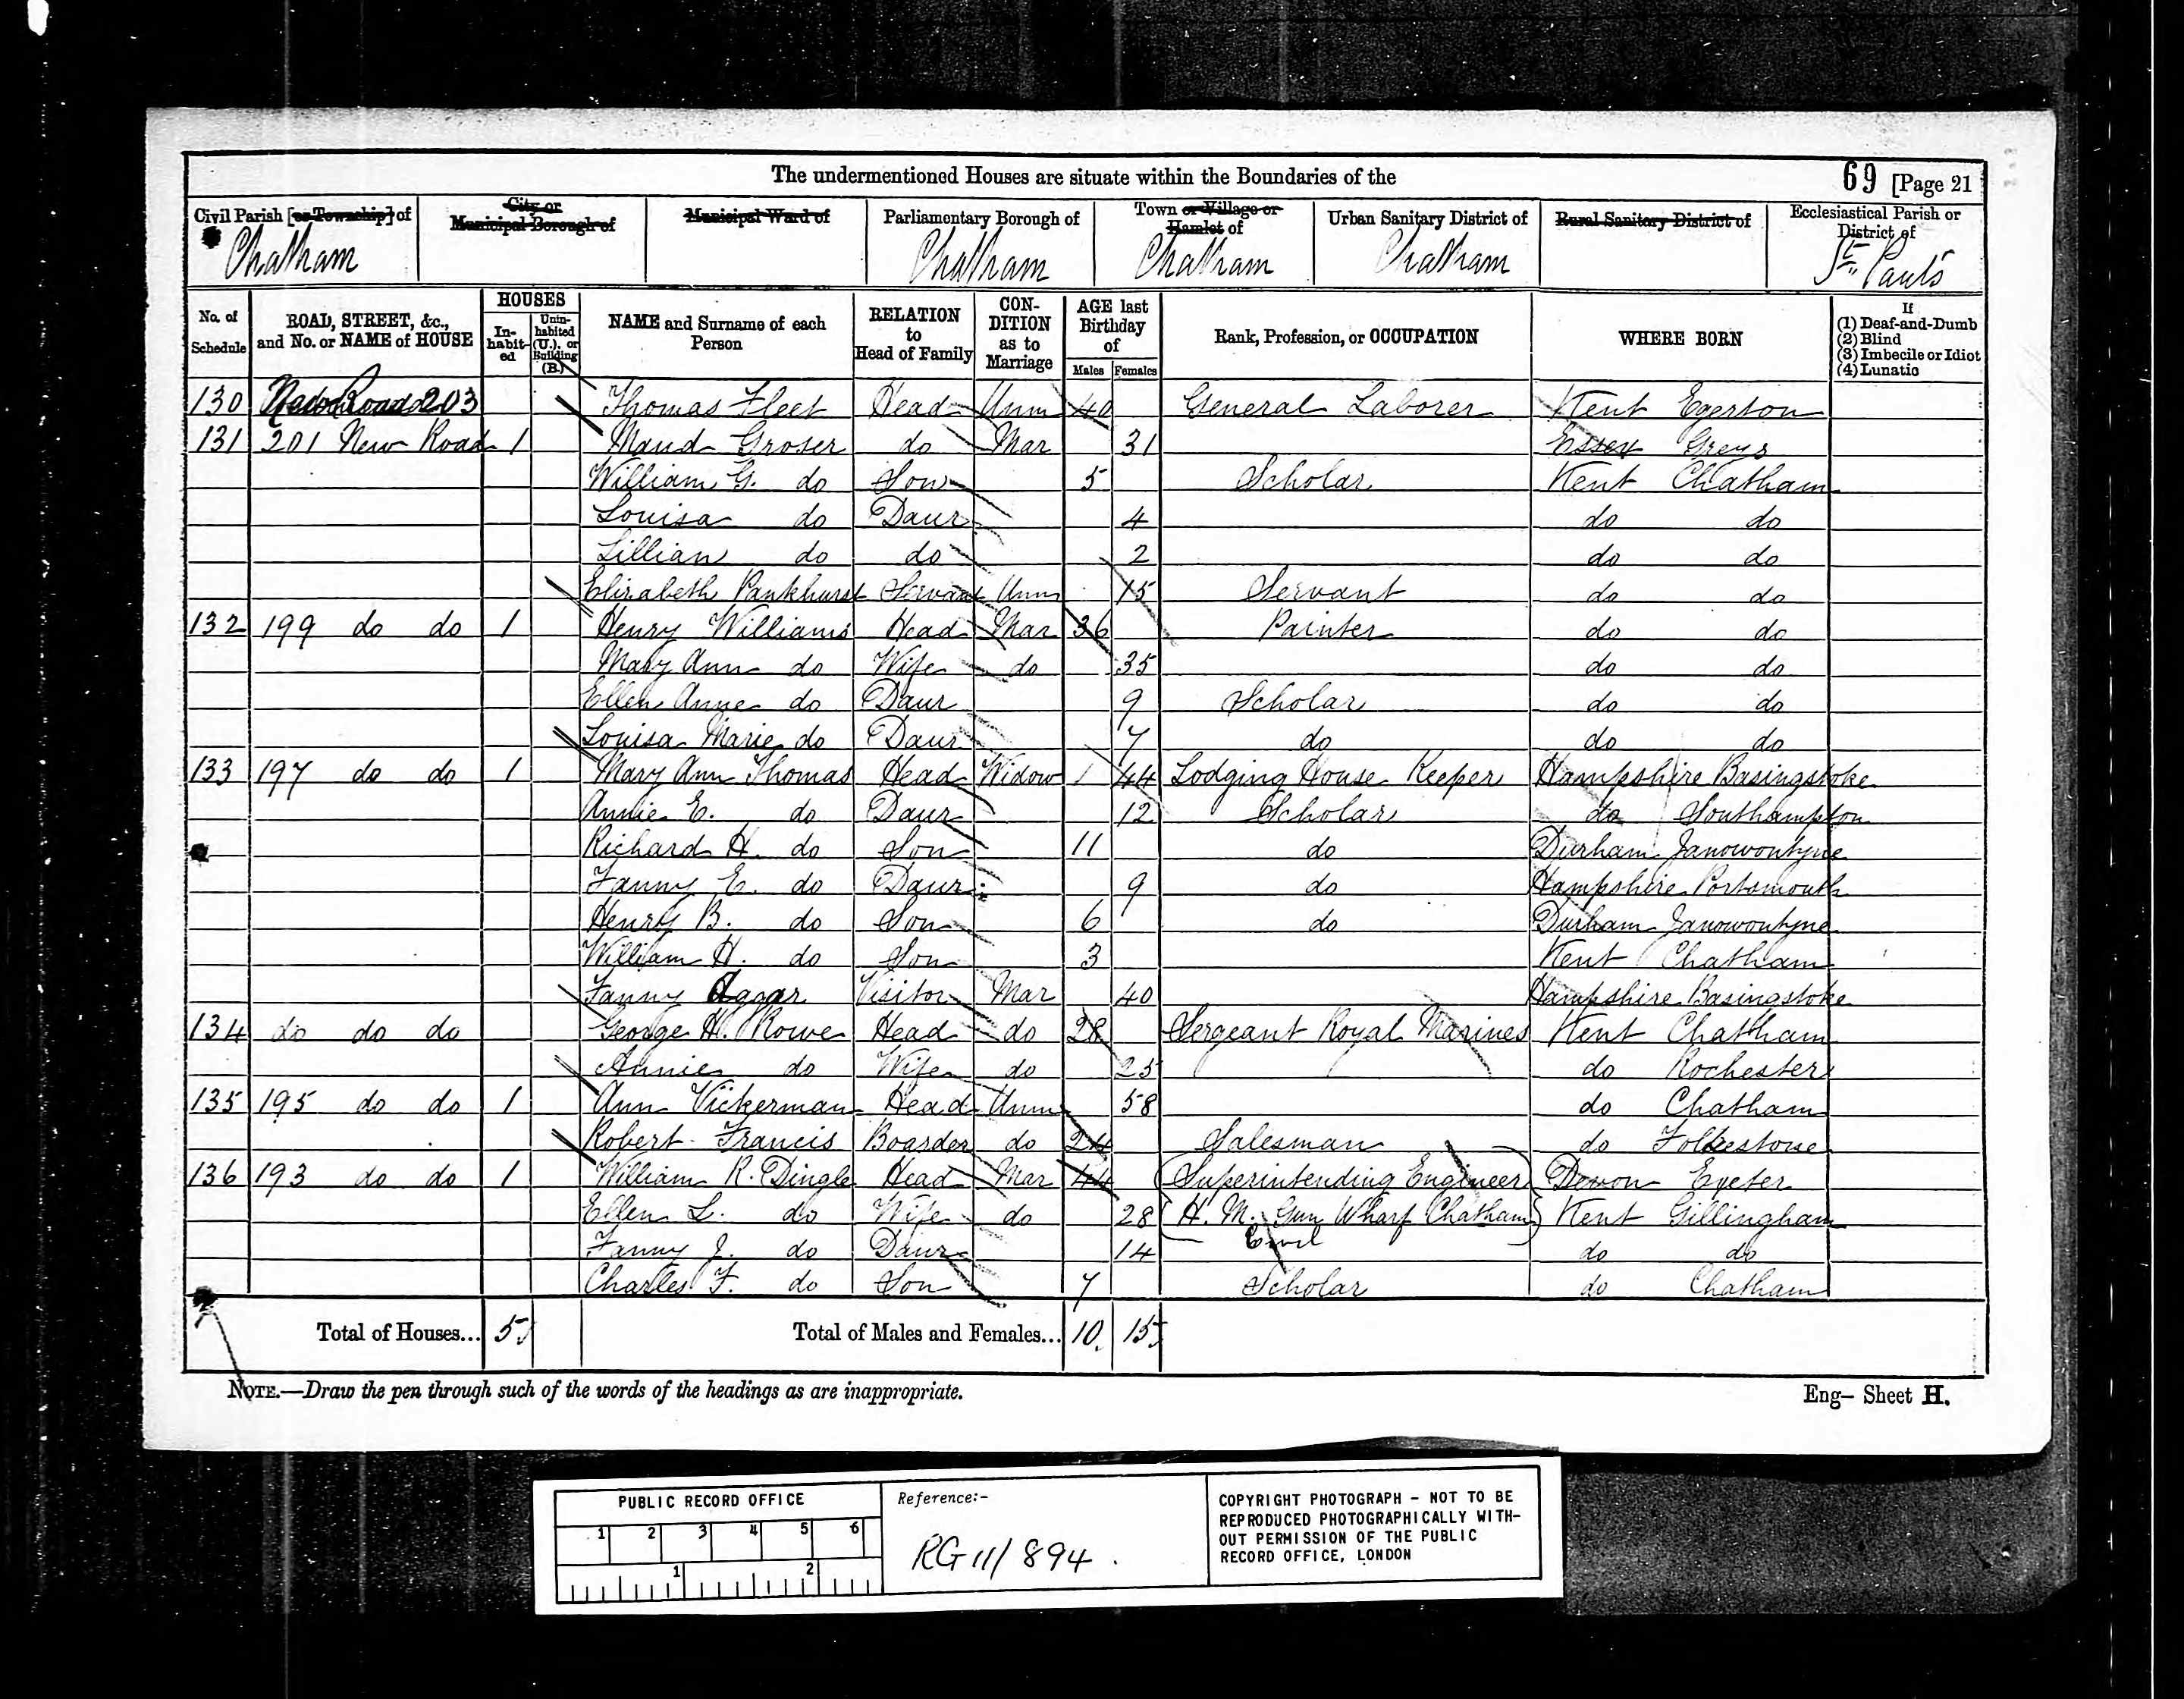 The undermentioned Houses are situate within the Boundaries of the
69 [Page 21
Civil Parish [or Township] of Chatham
City or Municipal Borough of
Municipal Ward of
Parliamentary Borough of Chatham
Town or Village or Hamlet of Chatham
Urban Sanitary District of Chatham
Rural Sanitary District of
Ecclesiastical Parish or District of St. Pauls
No. of Schedule
ROAD, STREET, &c., and No. or NAME of HOUSE
HOUSES
In-habit-ed
Unin-habited (U.), or Building (B.)
NAME and Surname of each Person
RELATION to Head of Family
CON-DITION as to Marriage
AGE last Birthday of
Males Females
Rank, Profession, or OCCUPATION
WHERE BORN
If
(1) Deaf-and-Dumb
(2) Blind
(3) Imbecile or Idiot
(4) Lunatic
130 Road 203 Thomas Fleet Head Unm 40 General Laborer Kent Egerton
131 201 New Road 1 Maud Groser do Mar 31 Essex Greys
William G. do Son 5 Scholar Kent Chatham
Louisa do Daur 4 do do
Lillian do do 2 do do
Elizabeth Pankhurst Servant Unm 15 Servant do do
132 199 do do 1 Henry Williams Head Mar 36 Painter do do
Mary Ann do Wife do 35 do do
Ellen Anne do Daur 9 Scholar do do
Louisa Marie do Daur 7 do do do
133 197 do do 1 Mary Ann Thomas Head Widow 44 Lodging House Keeper Hampshire Basingstoke
Annie E. do Daur 12 Scholar do Southampton
Richard H. do Son 11 do Durham Janowontyne
Fanny E. do Daur 9 do Hampshire Portsmouth
Henry B. do Son 6 do Durham Janowontyne
William H. do Son 3 Kent Chatham
Fanny Visitor Mar 40 Hampshire Basingstoke
134 do do do George H. Rowe Head do 28 Sergeant Royal Marines Kent Chatham
Annie do Wife do 25 do Rochester
135 195 do do 1 Ann Vickerman Head Unm 58 do Chatham
Robert Francis Boarder do 24 Salesman do Folkestone
136 193 do do 1 William R. Dingle Head Mar 44 Superintending Engineer Devon Exeter
Ellen L. do Wife do 28 H. M. Gun Wharf Chatham Kent Gillingham
Fanny J. do Daur 14 Civil do do
Charles F. do Son 7 Scholar do Chatham
Total of Houses... 5
Total of Males and Females... 10 15
NOTE.—Draw the pen through such of the words of the headings as are inappropriate.
Eng— Sheet H.
PUBLIC RECORD OFFICE
1 2 3 4 5 6
1 2
Reference:-
RG 11/894.
COPYRIGHT PHOTOGRAPH - NOT TO BE
REPRODUCED PHOTOGRAPHICALLY WITH-
OUT PERMISSION OF THE PUBLIC
RECORD OFFICE, LONDON